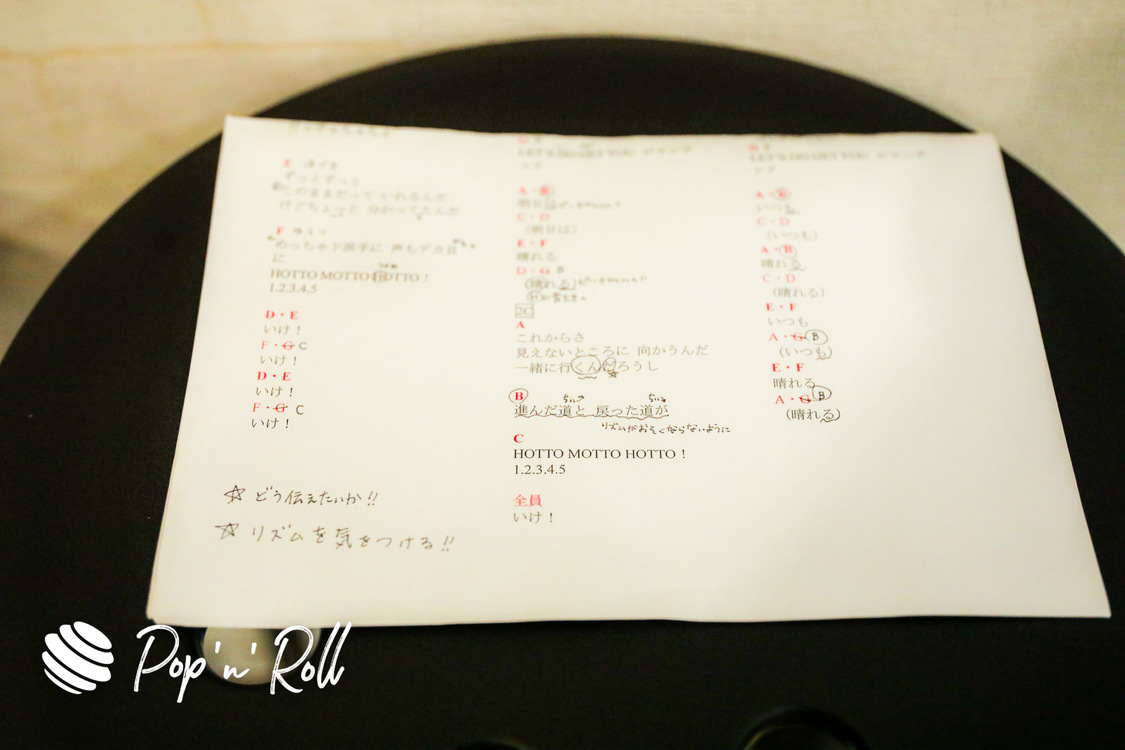 E
ずっとずっと
このままだって いれるんだ
けどちょっと 分かってたんだ
F
めっちゃド派手に 声もデカ目
に
HOTTO MOTTO HOTTO！
1.2.3.4.5
D・E
いけ！
F・G C
いけ！
D・E
いけ！
F・G C
いけ！
☆ どう伝えたいか!!
☆ リズムを気をつける!!
LET'S GO GET YOU
A・B
明日は
C・D
(明日は)
E・F
晴れる
D・G B
(晴れる)
2C
A
これからさ
見えないところに 向かうんだ
一緒に行くんだろうし
B
進んだ道と 戻った道が
リズムがおそくならないように
C
HOTTO MOTTO HOTTO！
1.2.3.4.5
全員
いけ！
LET'S GO GET YOU
A・B
いつも
C・D
(いつも)
A・B
晴れる
C・D
(晴れる)
E・F
いつも
A・G B
(いつも)
E・F
晴れる
A・G B
(晴れる)
Pop'n'Roll